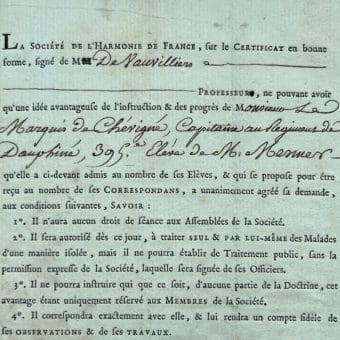 LA SOCIÉTÉ DE L'HARMONIE DE FRANCE, sur le CERTIFICAT en bonne
forme, signé de MM De Vauvilliers a
PROFESSEURS, ne pouvant avoir
qu'une idée avantageuse de l'instruction & des progrès de Monsieur Le
Marquis de Chérigné, Capitaine au Regiment de
Dauphiné, 395.e Elévé de M. Mesmer
qu'elle a ci-devant admis au nombre de ses Elèves, & qui se propose pour être
reçu au nombre de ses CORRESPONDANS, a unanimement agréé sa demande,
aux conditions suivantes, SAVOIR :
1°. Il n'aura aucun droit de séance aux Assemblées de la Société.
2°. Il sera autorisé dès ce jour, à traiter SEUL & PAR LUI-MÊME des Malades
d'une manière isolée, mais il ne pourra établir de Traitement public, sans la
permission expresse de la Société, laquelle sera signée de ses Officiers.
3°. Il ne pourra instruire qui que ce soit, d'aucune partie de la Doctrine, cet
avantage étant uniquement réservé aux MEMBRES de la Société.
4°. Il correspondra exactement avec elle, & lui rendra un compte fidèle de
ses OBSERVATIONS & de ses TRAVAUX.